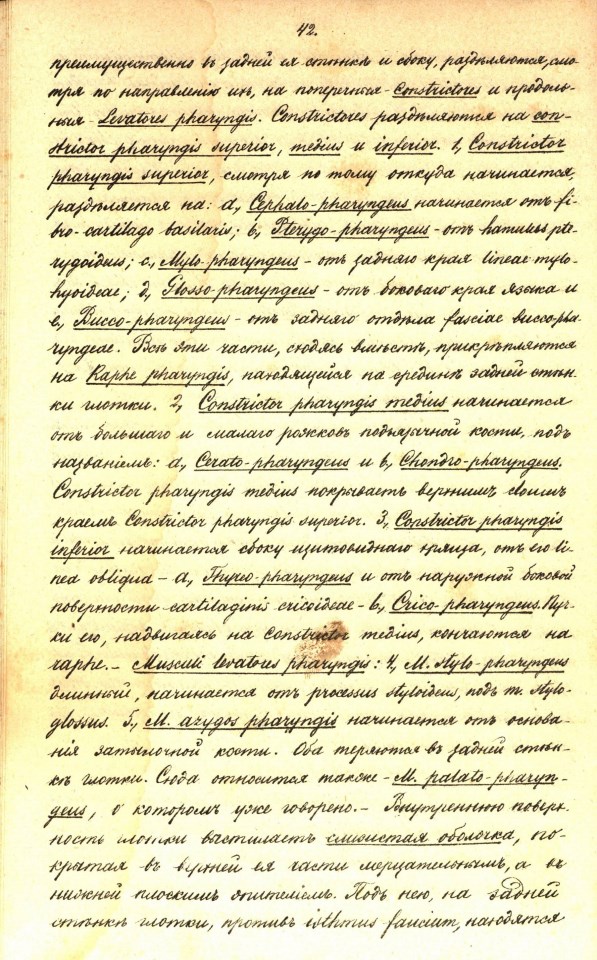 42.
преимущественно въ задней ея стѣнкѣ и сбоку, раздѣляются, смо-
тря по направленію ихъ, на поперечныя - Constrictores и продоль-
ныя - Levatores pharyngis. Constrictores раздѣляются на con-
strictor pharyngis superior, medius и inferior. 1, Constrictor
pharyngis superior, смотря по тому откуда начинается,
раздѣляется на: a, Cephalo-pharyngeus начинается отъ fi-
bro-cartilago basilaris; b, Pterygo-pharyngeus - отъ hamulus pte-
rygoideus; c, Mylo-pharyngeus - отъ задняго края lineae mylo-
hyoideae; d, Glosso-pharyngeus - отъ боковаго края языка и
e, Bucco-pharyngeus - отъ задняго отдѣла fasciae bucco-pha-
ryngeae. Всѣ эти части, сходясь вмѣстѣ, прикрѣпляются
на Raphe pharyngis, находящейся на срединѣ задней стѣн-
ки глотки. 2, Constrictor pharyngis medius начинается
отъ большаго и малаго рожковъ подъязычной кости, подъ
названіемъ: a, Cerato-pharyngeus и b, Chondro-pharyngeus.
Constrictor pharyngis medius покрываетъ верхнимъ своимъ
краемъ Constrictor pharyngis superior. 3, Constrictor pharyngis
inferior начинается сбоку щитовиднаго хряща, отъ его li-
nea obliqua - a, Thyreo-pharyngeus и отъ наружной боковой
поверхности cartilaginis cricoideae - b, Crico-pharyngeus. Пуч-
ки его, надвигаясь на Constrictor medius, кончаются на
raphe. - Musculi levatores pharyngis: 4, M. stylo-pharyngeus
длинный, начинается отъ processus styloideus, подъ m. stylo-
glossus. 5, M. azygos pharyngis начинается отъ основа-
нія затылочной кости. Оба теряются въ задней стѣн-
кѣ глотки. Сюда относится также - M. palato-pharyn-
geus, о которомъ уже говорено. - Внутреннюю поверх-
ность глотки выстилаетъ слизистая оболочка, по-
крытая въ верхней ея части мерцательнымъ, а въ
нижней плоскимъ эпителіемъ. Подъ нею, на задней
стѣнкѣ глотки, противъ isthmus faucium, находятся